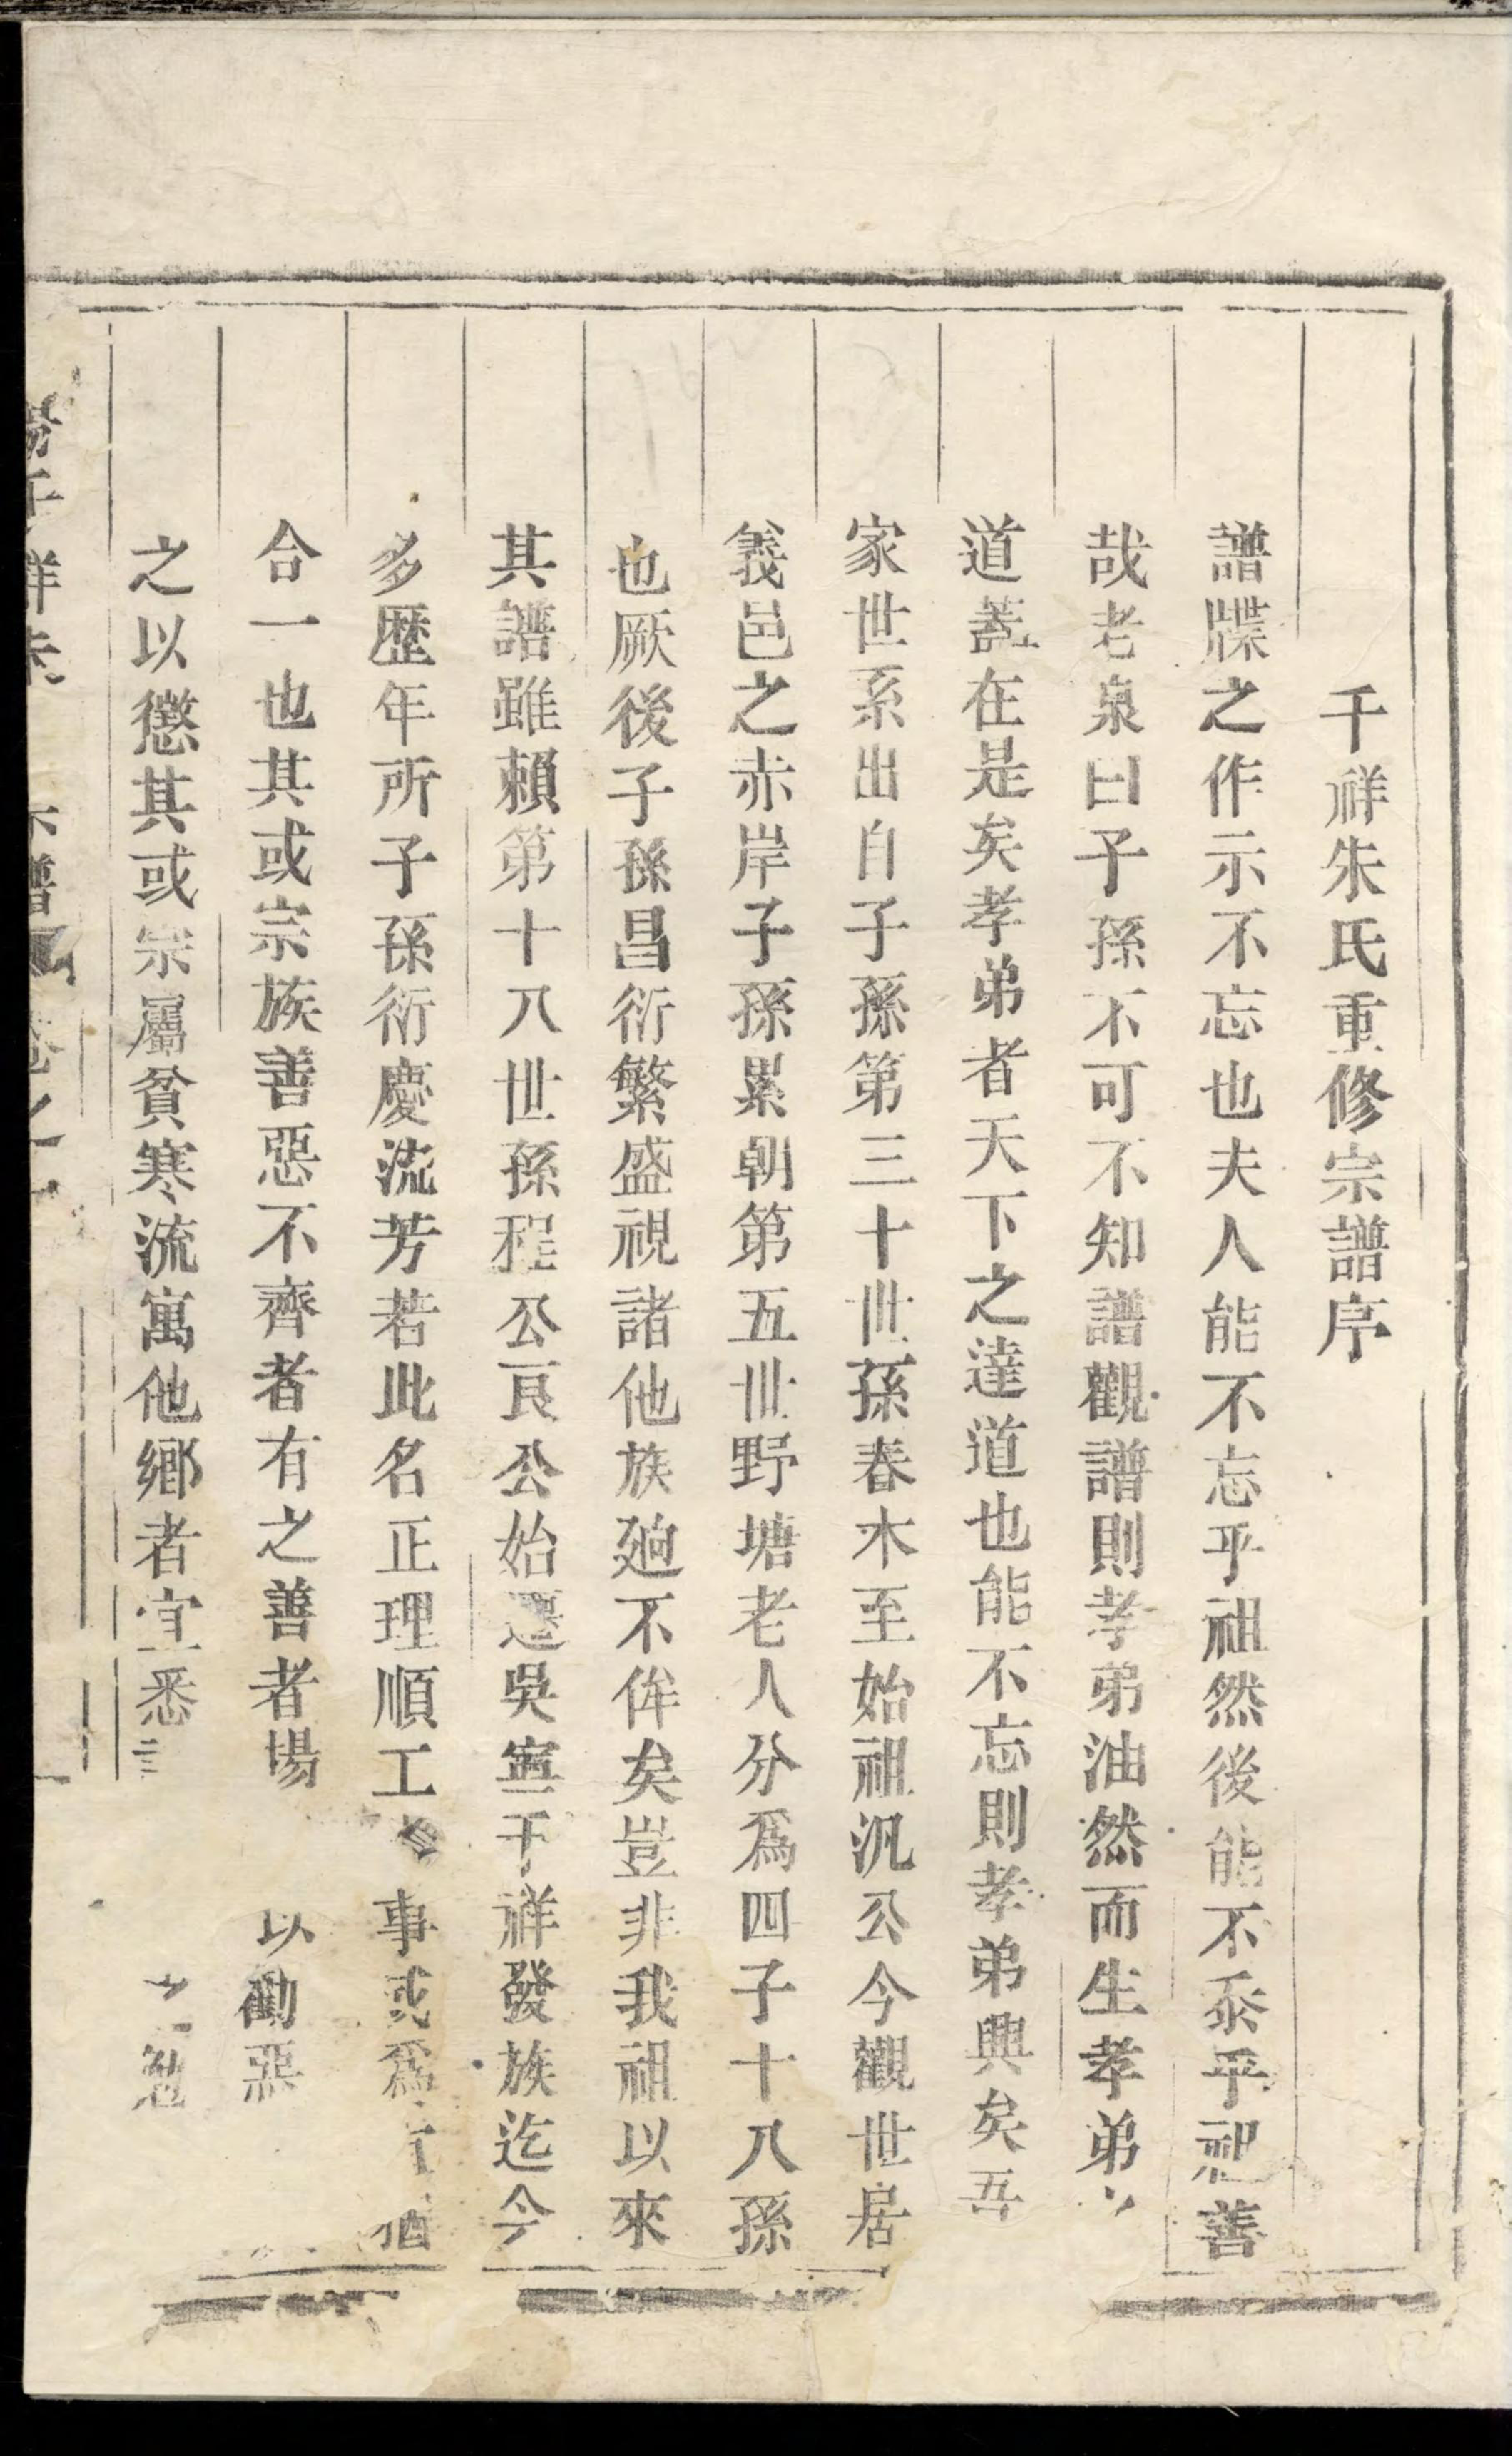 千祥朱氏重修宗譜序
譜牒之作示不忘也夫人能不忘乎祖然後能不忝乎祖善
哉老泉曰子孫不可不知譜觀譜則孝弟油然而生孝弟
道蓋在是矣孝弟者天下之達道也能不忘則孝弟興矣吾
家世系出自子孫第三十世孫春木至始祖汎公今觀世居
義邑之赤岸子孫累朝第五世野塘老人分爲四子十八孫
也厥後子孫昌衍繁盛視諸他族逈不侔矣豈非我祖以來
其譜雖賴第十八世孫程公良公始遷吳寧千祥發族迄今
多歷年所子孫衍慶流芳若此名正理順工 事或爲 猶
合一也其或宗族善惡不齊者有之善者場 以勸惡
之以懲其或宗屬貧寒流寓他鄉者宜悉
祥朱 譜 卷之一